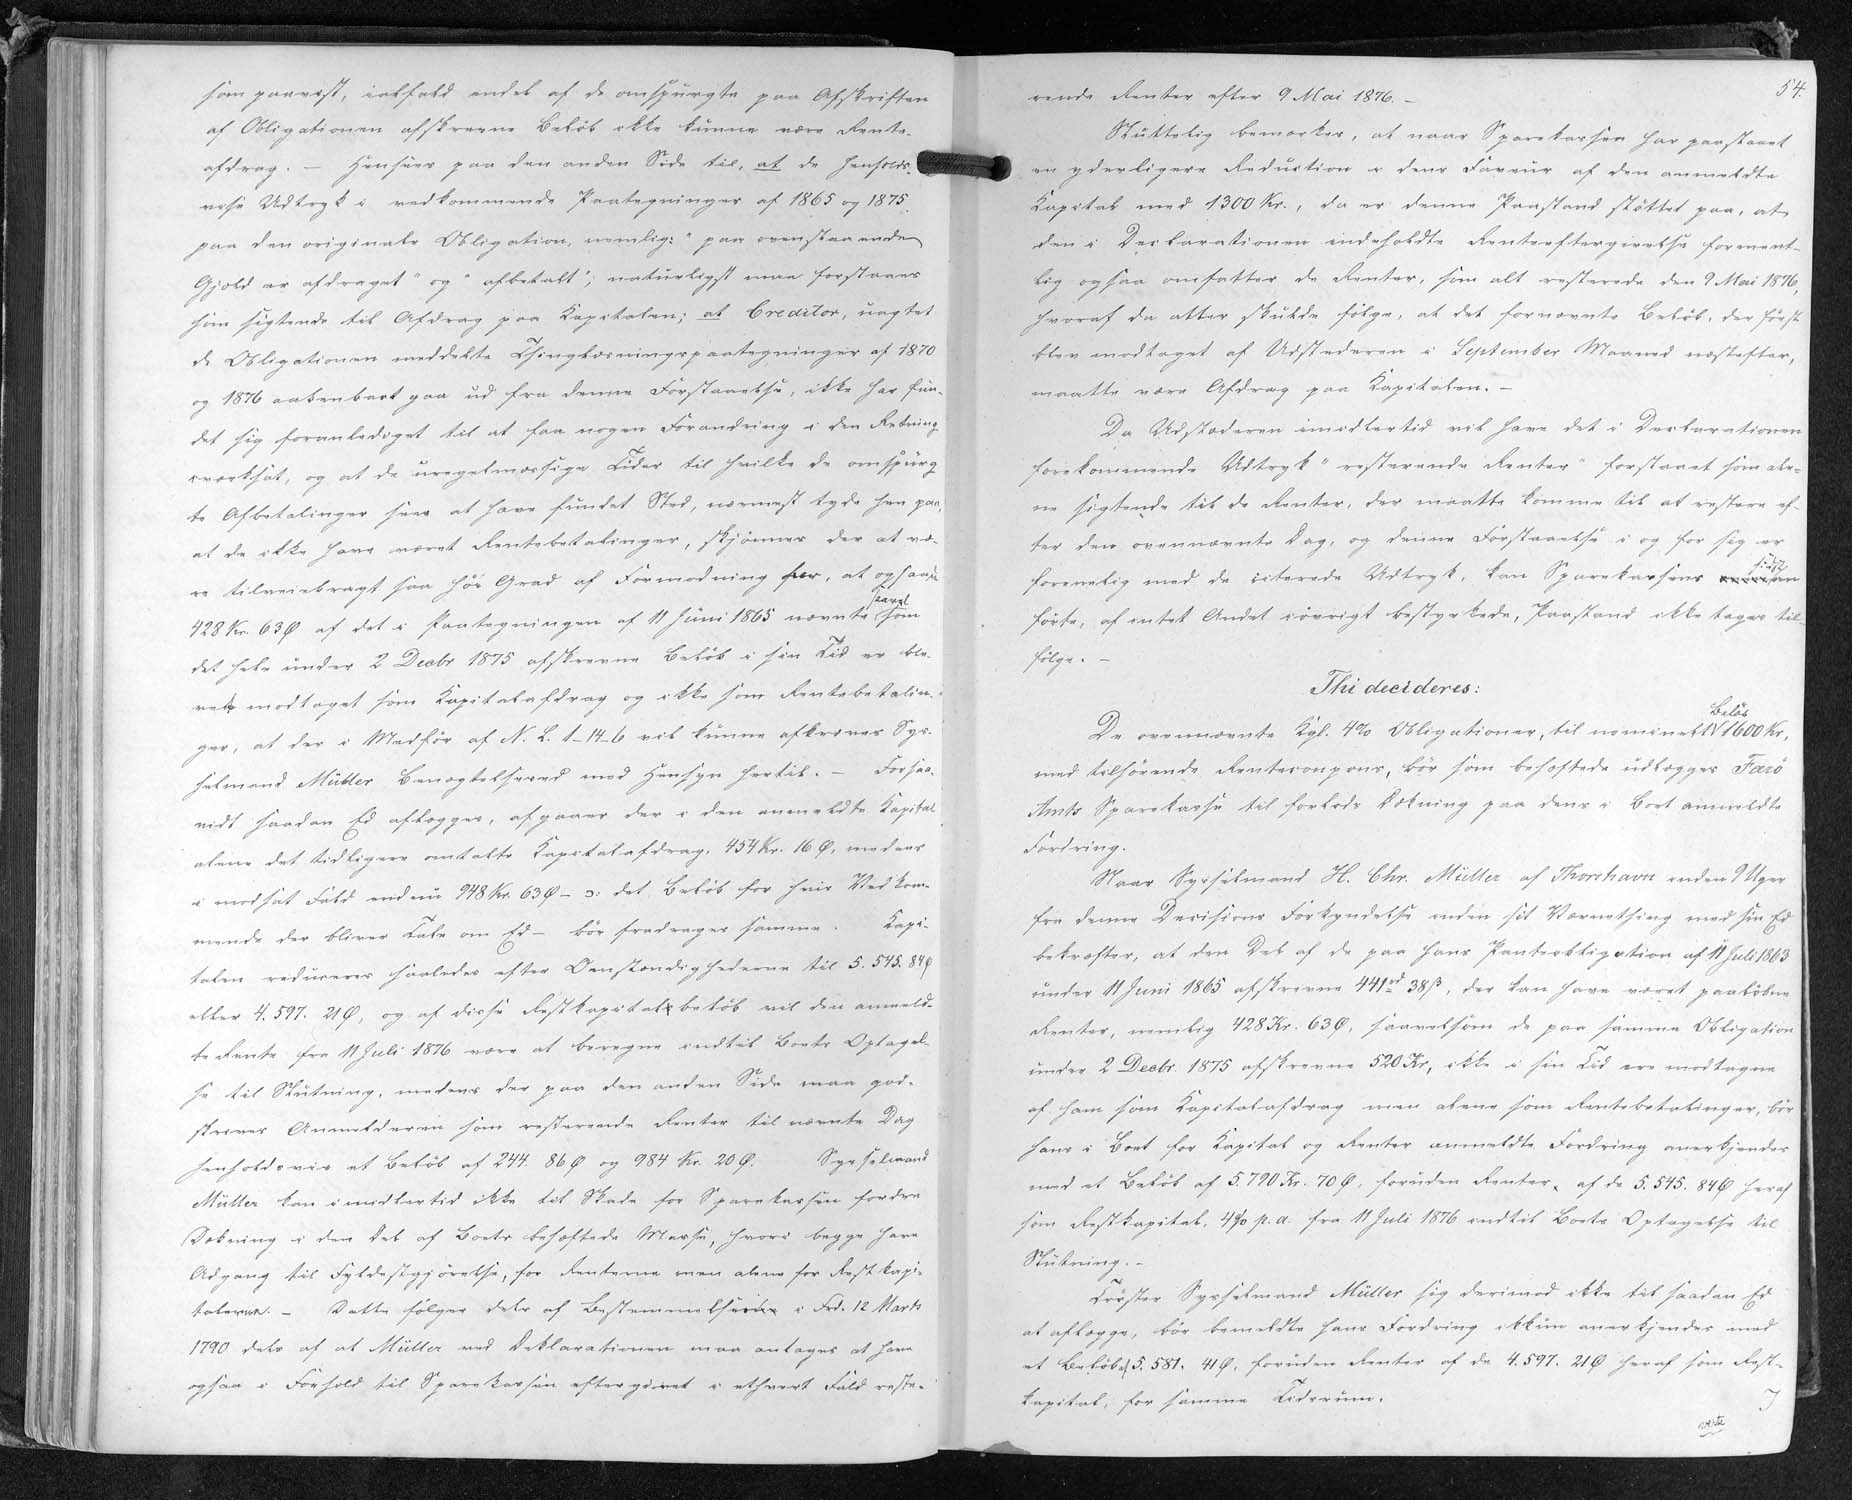 som paavist, ialfald endel af de omspurgte paa Afskriften
af Obligationen afskrevne Beløb ikke kunne være Rente-
afdrag. – Hensees paa den anden Side til, at de henholds-
vise Udtryk i vedkommende Paategninger af 1865 og 1875,
paa den originale Obligation, nemlig: "paa ovenstaaende
Gjæld er afdraget" og "afbetalt", naturligst maa forstaaes
som sigtende til Afdrag paa Kapitalen; at Creditor, uagtet
de Obligationen meddelte Thinglæsningspaategninger af 1870
og 1876 aabenbart gaa ud fra denne Forstaaelse, ikke har fun-
det sig foranlediget til at faa nogen Forandring i den Retning
iværksat, og at de uregelmæssige Tider til hvilke de omspurg-
te Afbetalinger sees at have fundet Sted, nærmest tyde hen paa,
at de ikke have været Rentebetalinger, skjønnes der at væ-
re tilveiebragt saa høi Grad af Formodning for, at ogsaa
428 Kr. 63 Ø af det i Paategningen af 11 Juni 1865 nævnte saavel som
det hele under 2 Decbr 1875 afskrevne Beløb i sin Tid er ble-
vet modtaget som Kapitalafdrag og ikke som Rentebetalin-
ger, at der i Medfør af N. L. 1–14–6 vil kunne afkræves Sys-
selmand Müller Benægtelseseed med Hensyn hertil. – Forsaa-
vidt saadan Ed aflægges, afgaaer der i den anmeldte Kapital
alene det tidligere omtalte Kapitalafdrag, 454 Kr. 16 Ø, medens
i modsat Fald endnu 948 Kr. 63 Ø – ɔ: det Beløb for hvis Vedkom-
mende der bliver Tale om Ed – bør fradrages samme. Kapi-
talen reduceres saaledes efter Omstændighederne til 5.545. 84 Ø
eller 4.597. 21 Ø, og af disse Restkapitalbeløb vil den anmeld-
te Rente fra 11 Juli 1876 være at beregne indtil Boets Optagel-
se til Slutning, medens der paa den anden Side maa god-
skrives Anmelderen som resterende Renter til nævnte Dag
henholdsvis et Beløb af 244. 86 Ø og 984 Kr. 20 Ø. Sysselmand
Müller kan imidlertid ikke til Skade for Sparekassen fordre
Dækning i den Del af Boets behæftede Masse, hvori begge have
Adgang til Fyldestgjørelse, for Renterne men alene for Restkapi-
talen. – Dette følger dels af Bestemmelsen i Frd. 12 Marts
1790 dels af at Müller ved Deklarationen maa antages at have
ogsaa i Forhold til Sparekassen eftergivet i ethvert Fald reste-
54.
rende Renter efter 9 Mai 1876. –
Sluttelig bemærkes, at naar Sparekassen har paastaaet
en yderligere Reduction i dens Faveur af den anmeldte
Kapital med 1300 Kr., da er denne Paastand støttet paa, at
den i Declarationen indeholdte Renteeftergivelse forment-
lig ogsaa omfatter de Renter, som alt resterede den 9 Mai 1876,
hvoraf da atter skulde følge, at det fornævnte Beløb, der først
blev modtaget af Udstederen i September Maaned næstefter,
maatte være Afdrag paa Kapitalen. –
Da Udstederen imidlertid vil have det i Declarationen
forekommende Udtryk "resterende Renter" forstaaet som ale-
ne sigtende til de Renter, der maatte komme til at restere ef-
ter den ovennævnte Dag, og denne Forstaaelse i og for sig er
forenelig med de citerede Udtryk, kan Sparekassens sidst an
førte, af intet Andet iøvrigt bestyrkede, Paastand ikke tages til-
følge. –
Thi decideres:
De ovennævnte Kgl. 4% Obligationer, til nominelt Beløb 1600 Kr,
med tilhørende Rentecoupons, bør som behæftede udlægges Færø
Amts Sparekasse til forlods Dækning paa dens i Boet anmeldte
Fordring.
Naar Sysselmand H. Chr. Müller af Thorshavn inden 9 Uger
fra denne Decisions Forkyndelse inden sit Værnething med sin Ed
bekræfter, at den Del af de paa hans Panteobligation af 11 Juli 1863
under 11 Juni 1865 afskrevne 441 rd 38 ß, der kan have været paaløbne
Renter, nemlig 428 Kr. 63 Ø, saavelsom de paa samme Obligation
under 2 Decbr. 1875 afskrevne 520 Kr, ikke i sin Tid ere modtagne
af ham som Kapitalafdrag men alene som Rentebetalinger, bør
hans i Boet for Kapital og Renter anmeldte Fordring anerkjendes
med et Beløb af 5.790 Kr. 70 Ø, foruden Renter, af de 5.545. 84 Ø heraf
som Restkapital, 4% p. a. fra 11 Juli 1876 indtil Boets Optagelse til
Slutning. –
Trøster Sysselmand Müller sig derimod ikke til saadan Ed
at aflægge, bør bemeldte hans Fordring ikkun anerkjendes med
et Beløb af 5.581. 41 Ø, foruden Renter af de 4.597. 21 Ø heraf som Rest-
kapital, for samme Tidsrum.
verte